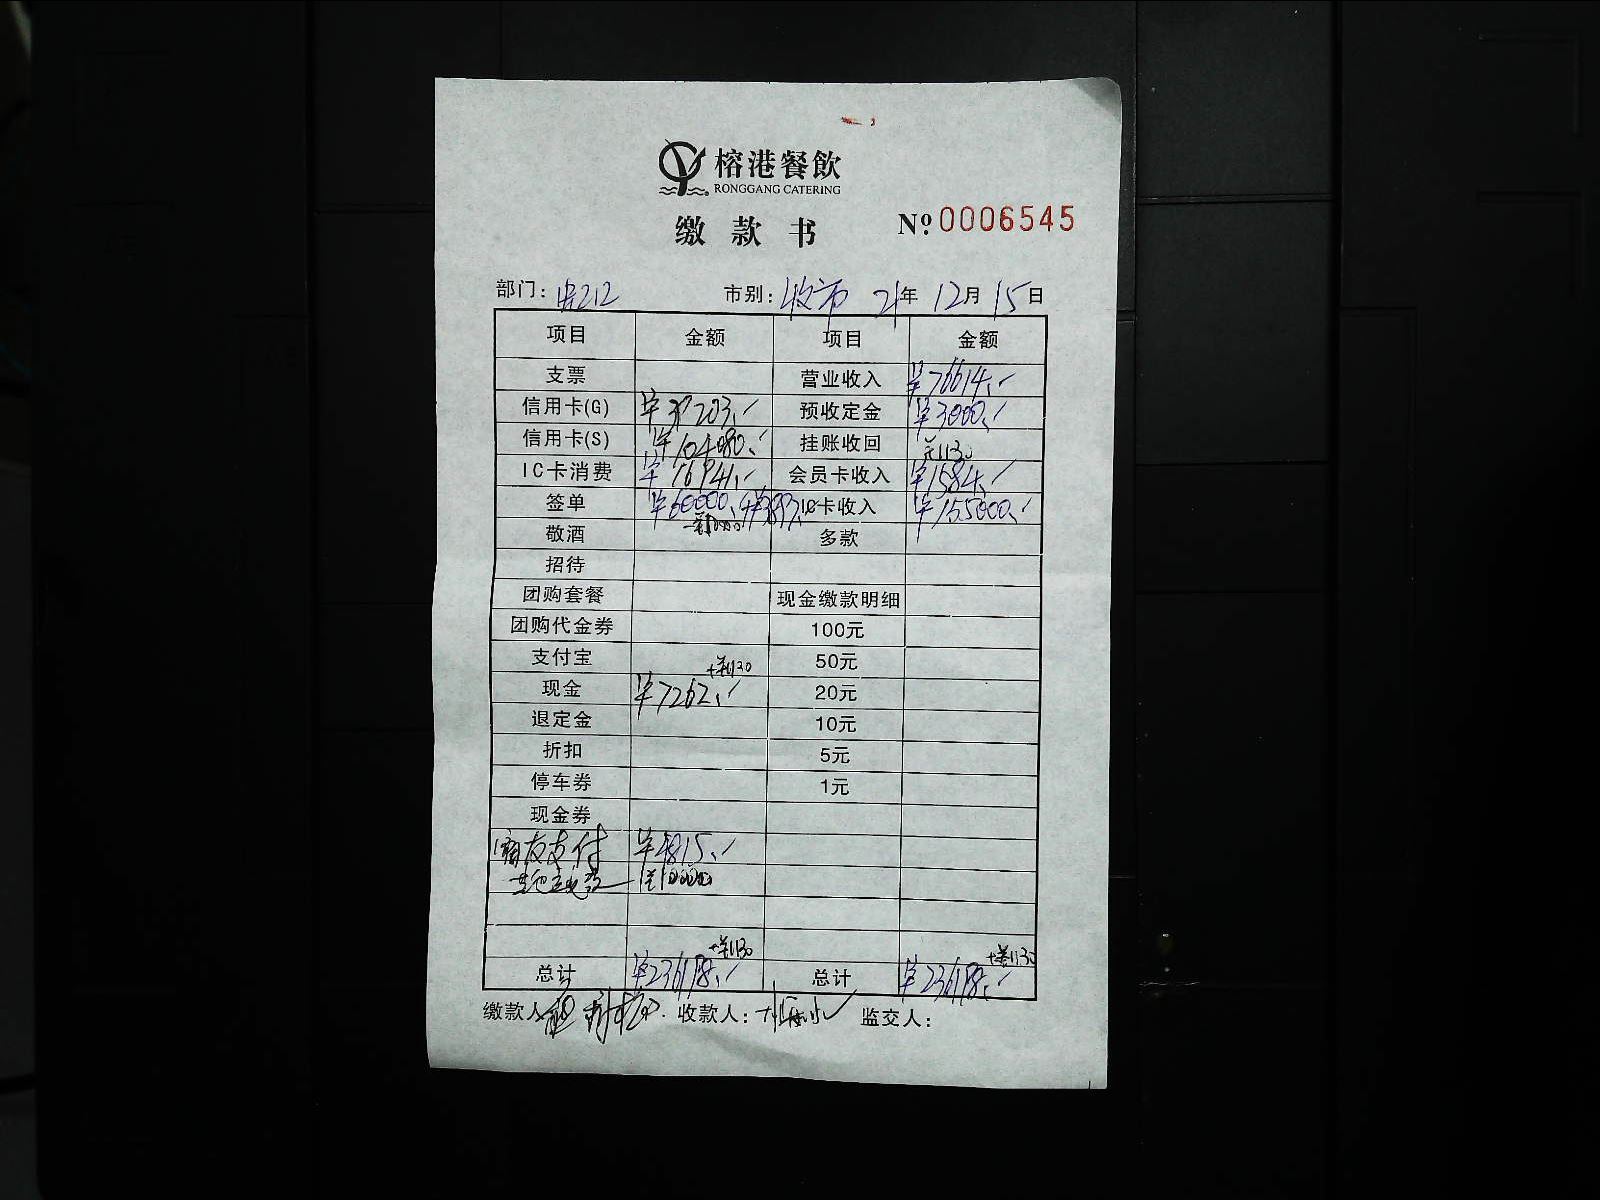 榕港餐飲
RONGGANG CATERING
缴款书 №:0006545
部门: 市别: 收市 21年 12月 15日
项目 金额 项目 金额
支票 营业收入 ¥76614.
信用卡(G) ¥37203. 预收定金 ¥3000.
信用卡(S) ¥104080. 挂账收回 ¥1130
IC卡消费 会员卡收入 ¥1584.
签单 ¥60000. IC卡收入 ¥155000.
敬酒 多款
招待
团购套餐 现金缴款明细
团购代金券 100元
支付宝 50元
+¥1130
现金 ¥7262. 20元
退定金 10元
折扣 5元
停车券 1元
现金券
支付 ¥4815.
¥10000
+¥1130 +¥1130
总计 ¥236198. 总计 ¥236198.
缴款人: 收款人: 监交人: